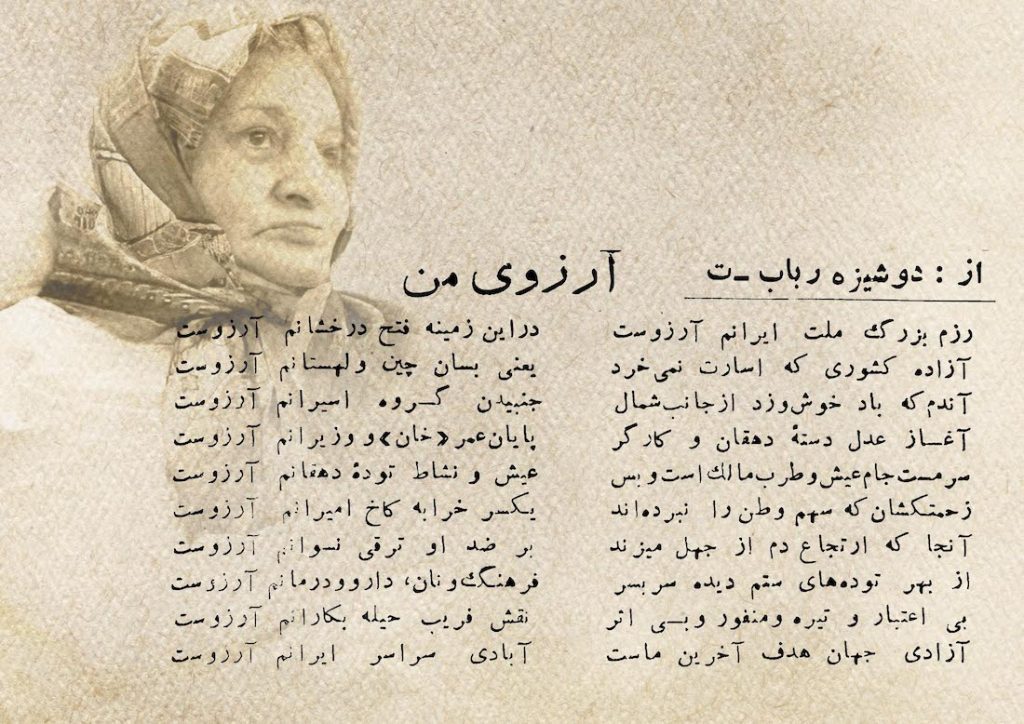 از : دوشیزه رباب ـ ت
آرزوی من
رزم بزرگ ملت ایرانم آرزوست دراین زمینه فتح درخشانم آرزوست
آزاده کشوری که اسارت نمی‌خرد یعنی بسان چین ولهستانم آرزوست
آندم‌که باد خوش‌وزد از جانب‌شمال جنبیدن گروه اسیرانم آرزوست
آغاز عدل دستهٔ دهقان و کارگر پایان‌عمر «خان» و وزیرانم آرزوست
سرمست‌جام‌عیش‌وطرب‌مالك‌است‌وبس عیش و نشاط تودهٔ دهقانم آرزوست
زحمتکشان‌که سهم وطن‌را نبرده‌اند یکسر خرابه کاخ امیرانم آرزوست
آنجا که ارتجاع دم از جهل میزند بر ضد او ترقی نسوانم آرزوست
از بهر توده‌های ستم دیده سربسر فرهنگ‌ونان، دارو ودرمانم آرزوست
بی اعتبار و تیره ومنفور وبی اثر نقش فریب حیله بکارانم آرزوست
آزادی جهان هدف آخرین ماست آبادی سراسر ایرانم آرزوست